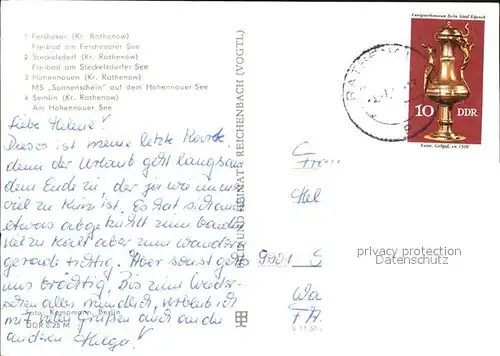 1 Ferchesar (Kr. Rathenow)
Freibad am Ferchesarer See
2 Steckelsdorf (Kr. Rathenow)
Freibad am Steckelsdorfer See
3 Hohennauen (Kr. Rathenow)
MS „Sonnenschein" auf dem Hohennauer See
4 Semlin (Kr. Rathenow)
Am Hohennauer See
Liebe Helene!
Dieses ist meine letzte Karte,
denn der Urlaub geht langsam
dem Ende zu, der ja wie immer
viel zu kurz ist. Es hat sich
etwas abgekühlt zum baden
viel zu kalt aber zum wandern
gerade richtig. Aber sonst geht's
uns prächtig. Bis zum Wieder-
sehen alles mündlich, verbleib ich
mit vielen Grüßen auch an die
anderen Helga!
Foto: Kampmann, Berlin
DDR 0,25 M
BILD UND HEIMAT REICHENBACH (VOGTL)
V 11 50
Kunstgewerbemuseum Berlin Schloß Köpenick
10 DDR
Kanne, Gelbguß, um 1500
RATHENOW
9901
privacy protection
watermark